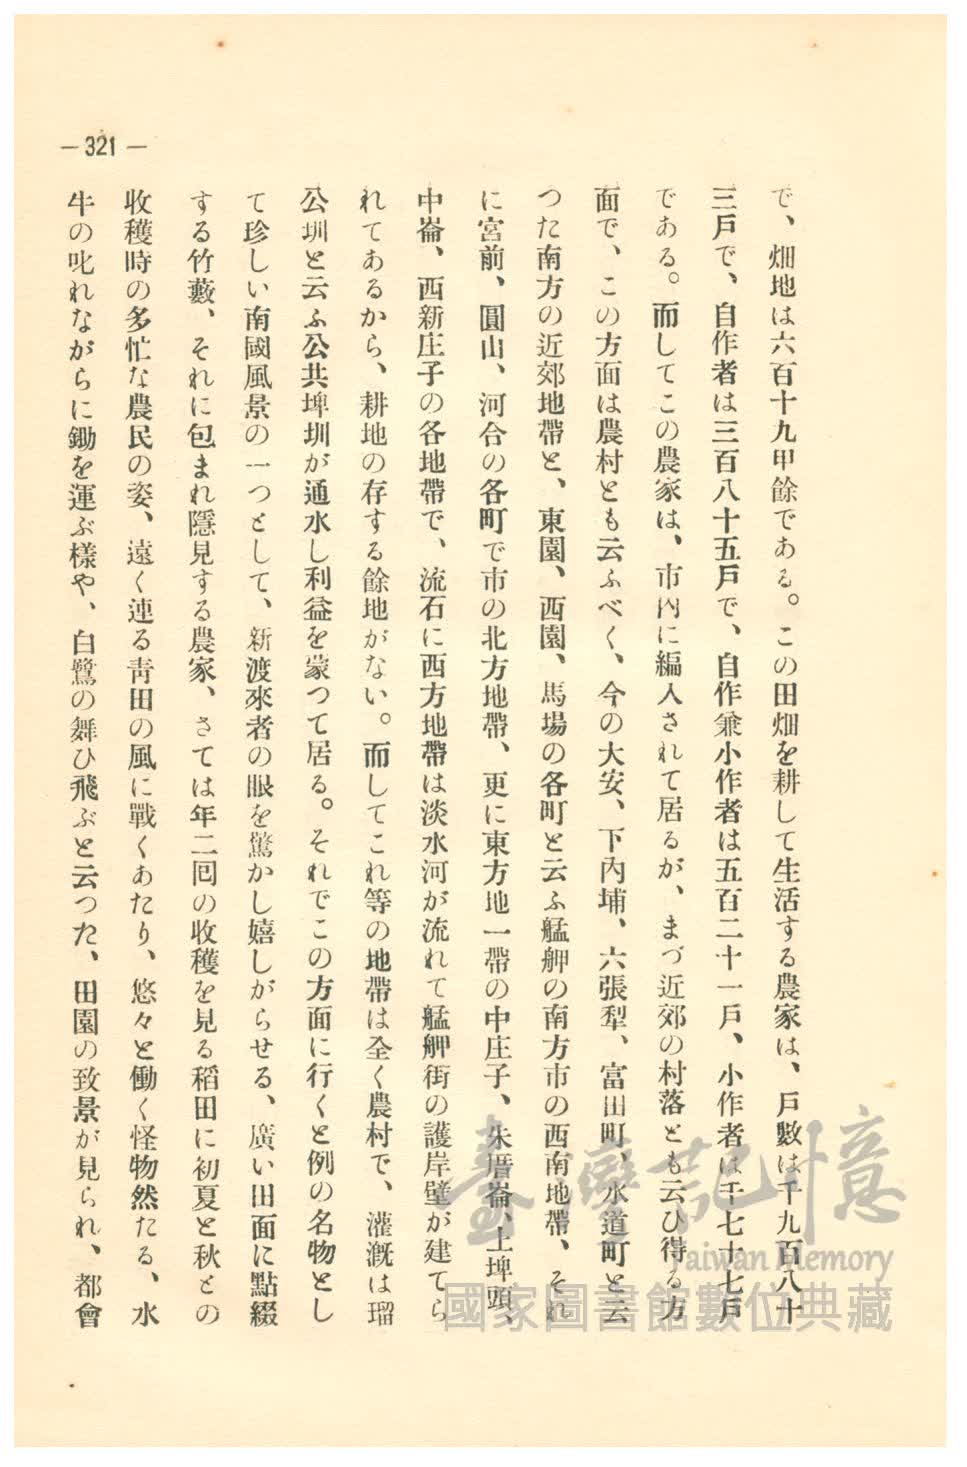 — 321 —
で、畑地は六百十九甲餘である。この田畑を耕して生活する農家は、戸數は千九百八十
三戸で、自作者は三百八十五戸で、自作兼小作者は五百二十一戸、小作者は千七十七戸
である。而してこの農家は、市內に編入されて居るが、まづ近郊の村落とも云ひ得る方
面で、この方面は農村とも云ふべく、今の大安、下內埔、六張犁、富田町、水道町と云
つた南方の近郊地帶と、東園、西園、馬場の各町と云ふ艋舺の南方市の西南地帶、それ
に宮前、圓山、河合の各町で市の北方地帶、更に東方地一帶の中庄子、朱厝崙、上埤頭、
中崙、西新庄子の各地帶で、流石に西方地帶は淡水河が流れて艋舺街の護岸壁が建てら
れてあるから、耕地の存する餘地がない。而してこれ等の地帶は全く農村で、灌漑は瑠
公圳と云ふ公共埤圳が通水し利益を蒙つて居る。それでこの方面に行くと例の名物とし
て珍しい南國風景の一つとして、新渡來者の眼を驚かし嬉しがらせる、廣い田面に點綴
する竹藪、それに包まれ隱見する農家、さては年二囘の收穫を見る稻田に初夏と秋との
收穫時の多忙な農民の姿、遠く連る靑田の風に戰くあたり、悠々と働く怪物然たる、水
牛の叱れながらに鋤を運ぶ樣や、白鷺の舞ひ飛ぶと云つた、田園の致景が見られ、都會
臺灣記憶
Taiwan Memory
國家圖書館數位典藏